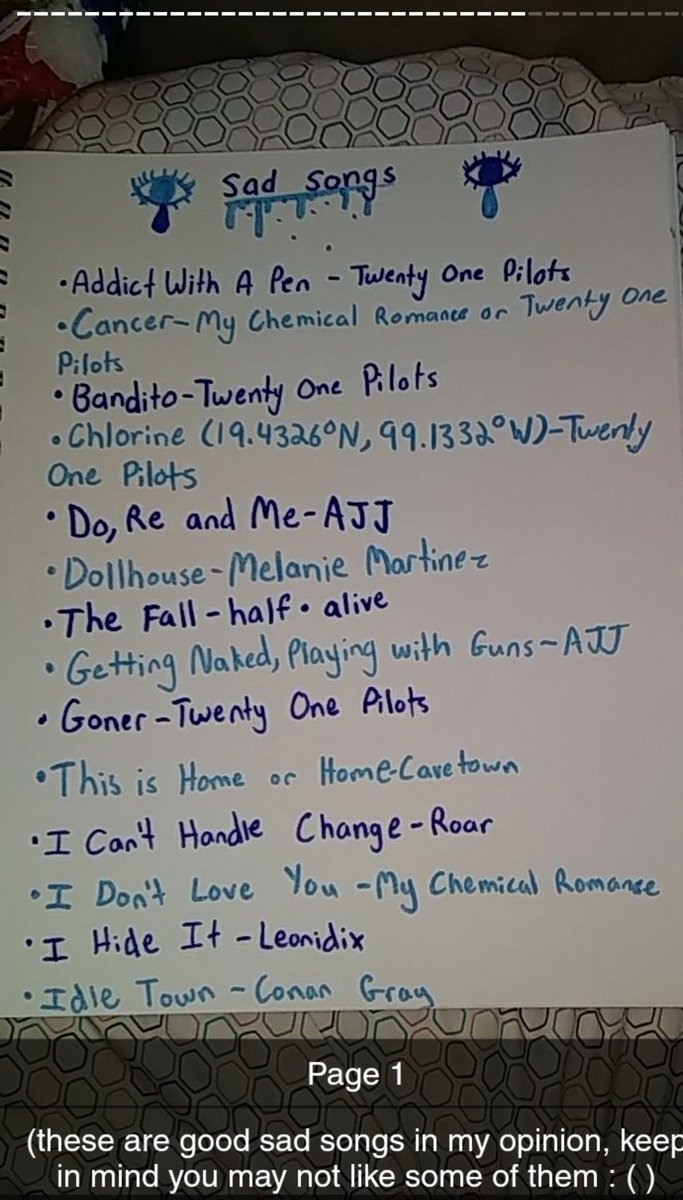 Sad Songs
•Addict With A Pen - Twenty One Pilots
•Cancer-My Chemical Romance or Twenty One
Pilots
•Bandito-Twenty One Pilots
•Chlorine (19.4326°N, 99.1332°W)-Twenty
One Pilots
•Do, Re and Me-AJJ
•Dollhouse-Melanie Martinez
•The Fall-half•alive
•Getting Naked, Playing with Guns-AJJ
•Goner-Twenty One Pilots
•This is Home or Home-Cavetown
•I Can't Handle Change-Roar
•I Don't Love You-My Chemical Romance
•I Hide It-Leonidix
•Idle Town-Conan Gray
Page 1
(these are good sad songs in my opinion, keep
in mind you may not like some of them : ( )